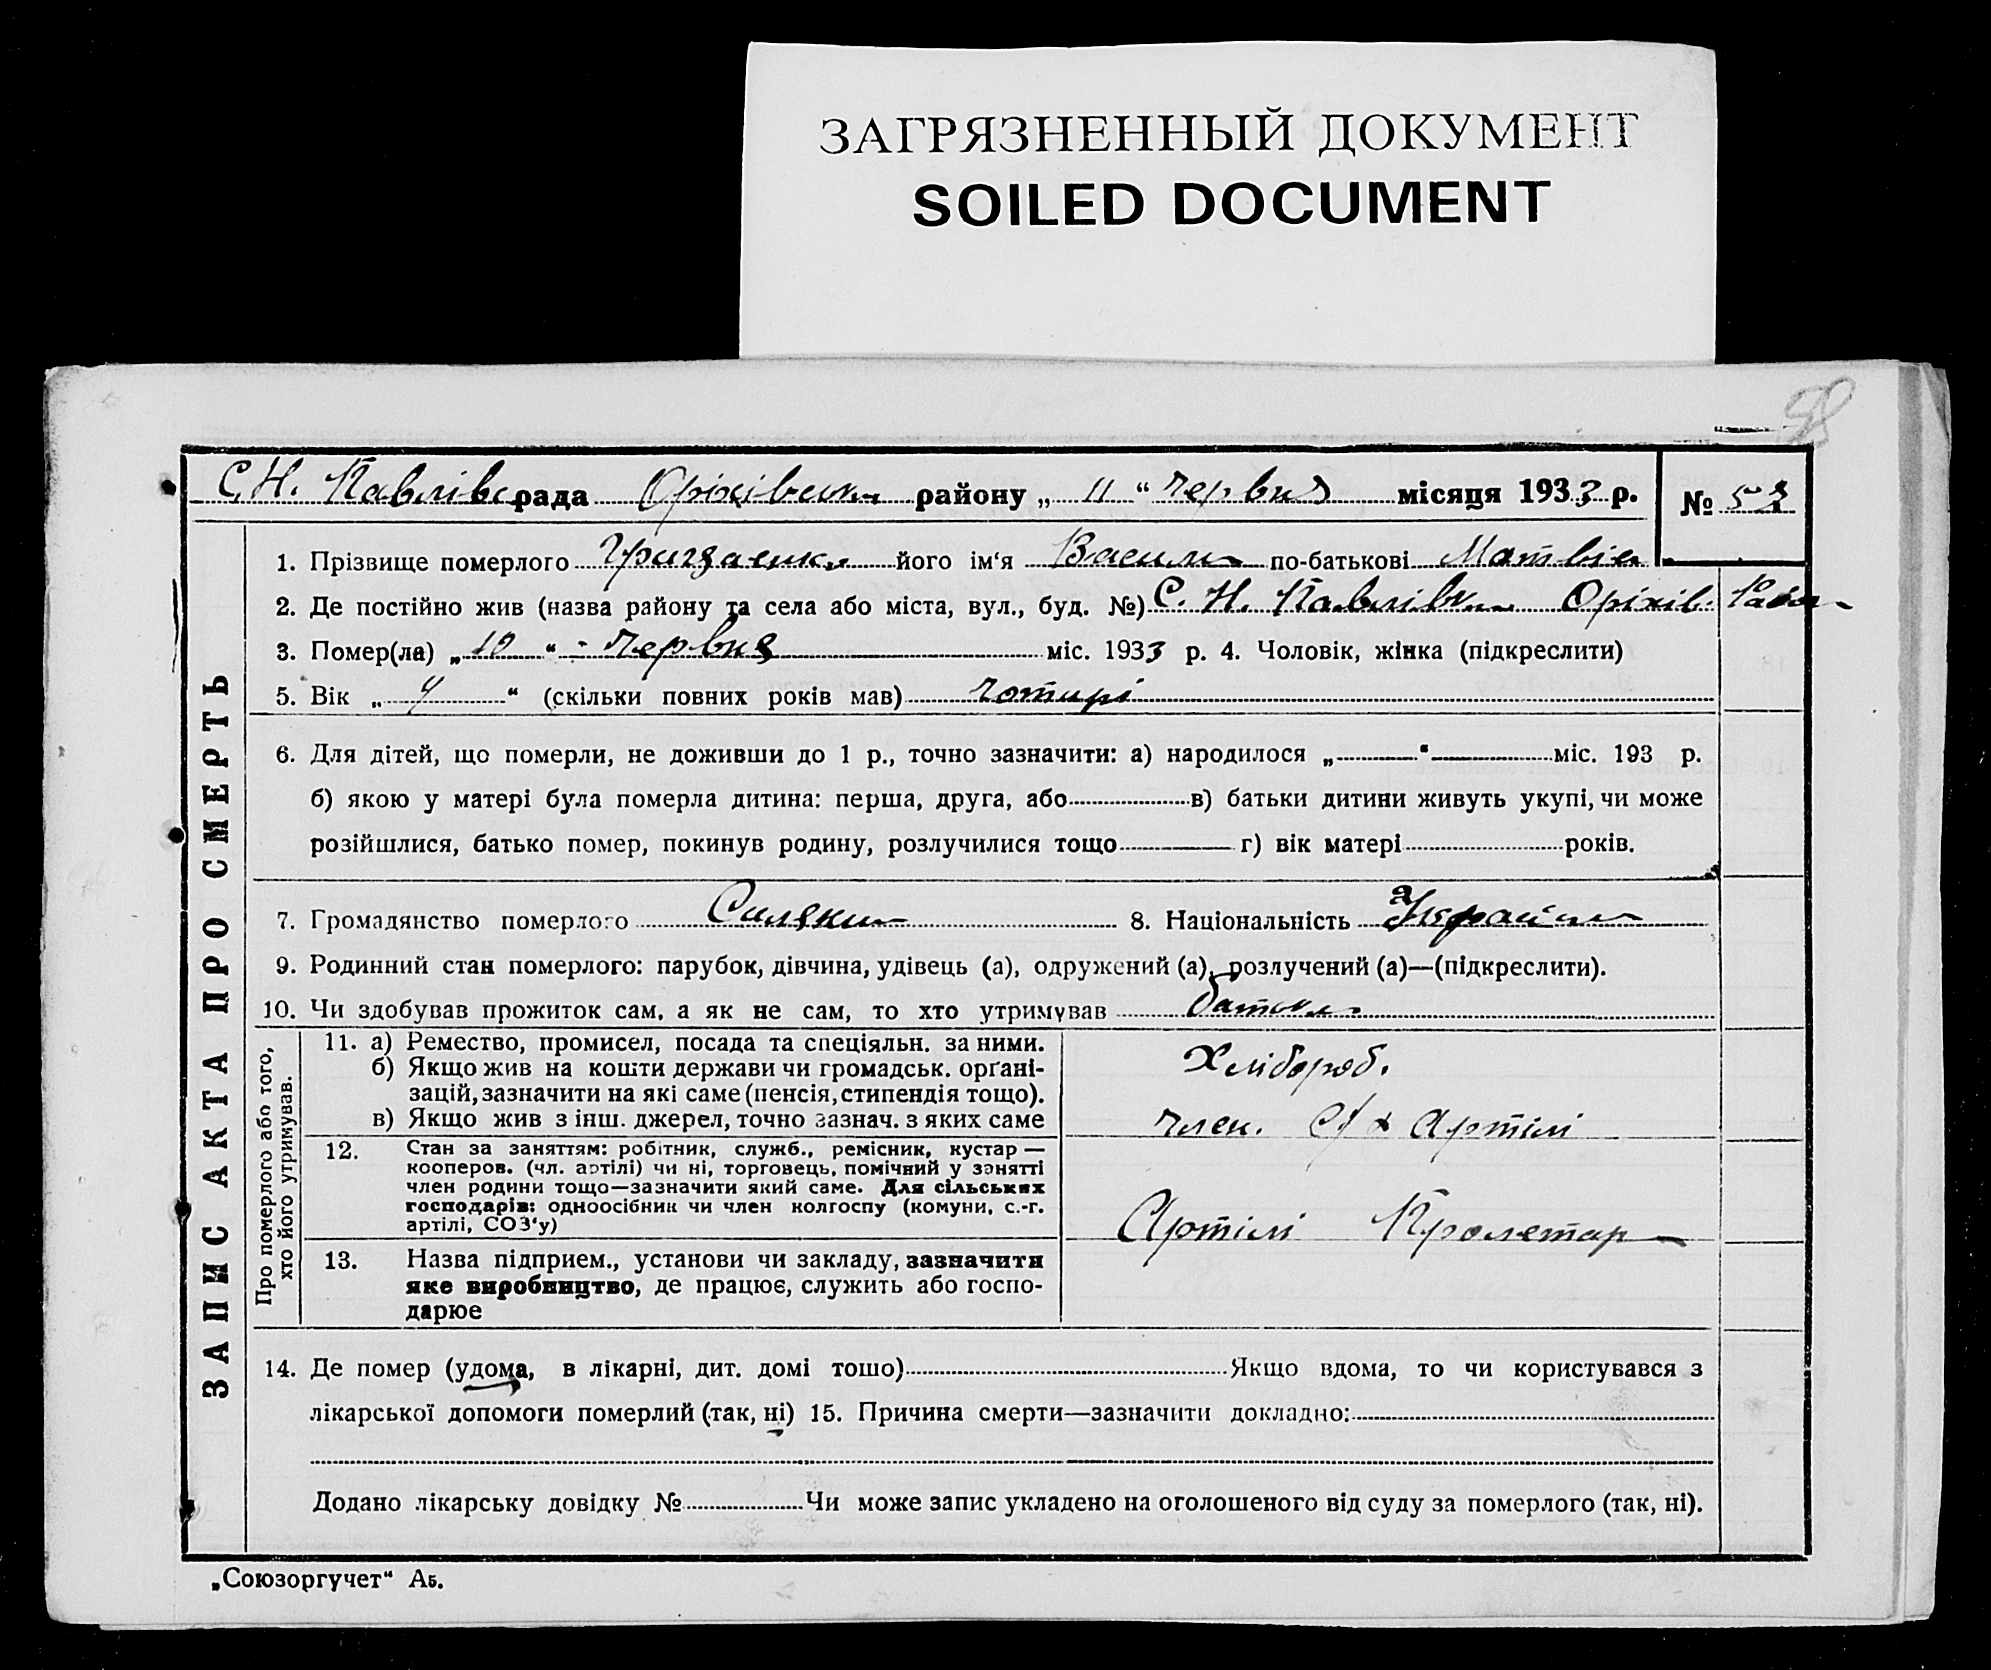 ЗАГРЯЗНЕННЫЙ ДОКУМЕНТ
SOILED DOCUMENT
С. Н. Павлівс рада Оріхівськ району „ 11 “ червня місяця 1933 р. № 53
ЗАПИС АКТА ПРО СМЕРТЬ
1. Прізвище померлого його ім‘я Васили по-батькові Матвієв
2. Де постійно жив (назва району та села або міста, вул., буд. №) С. Н. Павлівка Оріхів. Район
3. Помер(ла) „ 10 “ червня міс. 1933 р. 4. Чоловік, жінка (підкреслити)
5. Вік „ 4 “ (скільки повних років мав) чотирі
6. Для дітей, що померли, не доживши до 1 р., точно зазначити: а) народилося „ “ міс. 193 р.
б) якою у матері була померла дитина: перша, друга, або в) батьки дитини живуть укупі, чи може
розійшлися, батько помер, покинув родину, розлучилися тощо г) вік матері років.
7. Громадянство померлого Силянин 8. Національність Україн
9. Родинний стан померлого: парубок, дівчина, удівець (а), одружений (а), розлучений (а)—(підкреслити).
10. Чи здобував прожиток сам, а як не сам, то хто утримував батьки
Про померлого або того,
хто його утримував.
11. а) Ремество, промисел, посада та спеціяльн. за ними.
б) Якщо жив на кошти держави чи громадськ. орґані-
зацій, зазначити на які саме (пенсія, стипендія тощо).
в) Якщо жив з інш. джерел, точно зазнач. з яких саме
Хлібороб.
член. С/х Артілі
12. Стан за заняттям: робітник, служб., ремісник, кустар —
кооперов. (чл. артілі) чи ні, торговець, помічний у занятті
член родини тощо—зазначити який саме. Для сільських
господарів: одноосібник чи член колгоспу (комуни, с.-г.
артілі, СОЗ‘у)
Артілі Пролетар
13. Назва підприєм., установи чи закладу, зазначити
яке виробництво, де працює, служить або госпо-
дарює
14. Де помер (удома, в лікарні, дит. домі тошо) Якщо вдома, то чи користувався з
лікарської допомоги померлий (так, ні) 15. Причина смерти—зазначити докладно:
Додано лікарську довідку № Чи може запис укладено на оголошеного від суду за померлого (так, ні).
„Союзоргучет“ Аб.